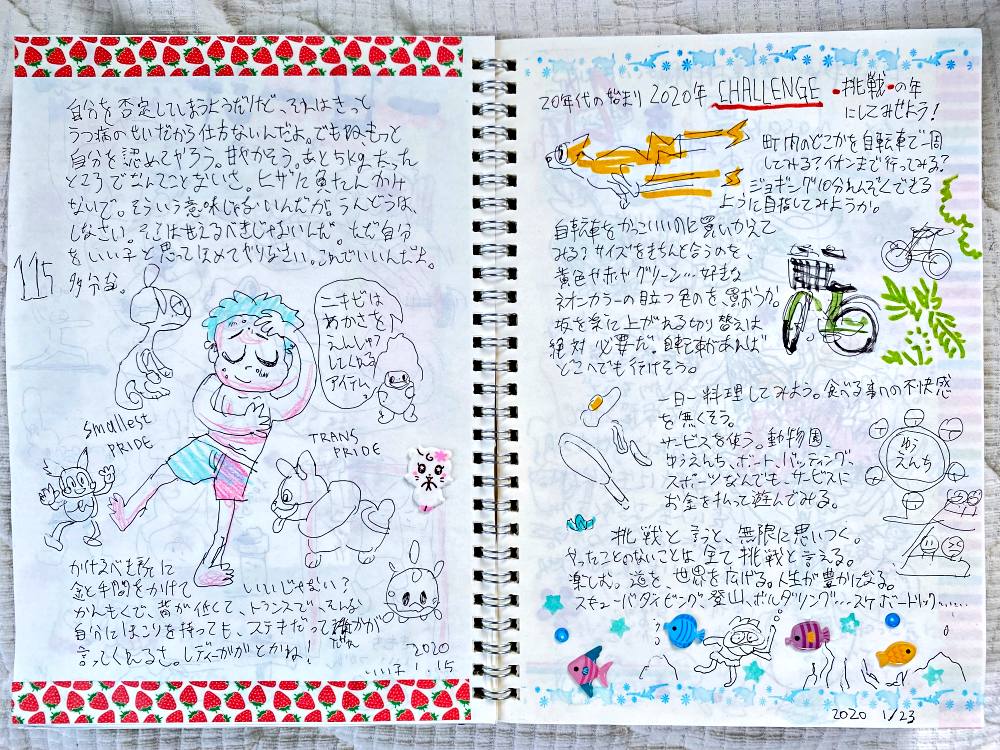 自分を否定してしまうようだけど、それはきっと
うつ病のせいだから仕方ないんだよ。でもね、もっと
自分を認めてやろう。甘やかそう。あと5kg太った
ところでなんてことないさ。ヒザに負たんかけ
ないで。そういう意味じゃないんだが。うんどうは、
しなさい。そこは甘えるべきじゃないんだ。
をいい子と思ってほめてやりなさい。これでいいんだよ。
115
多分な。
ニキビは
あかさを
えんしゅつ
してくれる
アイテム。
smallest
PRIDE
TRANS
PRIDE
金と手間をかけて
いいじゃない?
かんもくで、背が低くて、トランスで、そんな
自分にほこりを持っても、ステキだって誰かが
言ってくれるさ。レディーガガとかね!
2020
1.15
20年代の始まり 2020年 CHALLENGE 挑戦の年
にしてみせよう!
町内のどこかを自転車で一周
してみる?イオンまで行ってみる?
ジョギング10分れんぞくできる
ように目指してみようか。
自転車をかっこいいのに買いかえて
みる?サイズをきちんと合うのを、
黄色や赤やグリーン…好きな
ネオンカラーの目立つ色のを、買おうか。
坂を楽に上がれる切り替えは
絶対必要だ。自転車があれば
どこへでも行けそう。
一日一料理してみよう。食べる事への不快感
を無くそう。
サービスを使う。動物園、
ゆうえんち、ボート、バッティング、
スポーツなんでも、サービスに
お金を払って遊んでみる。
ゆう
えんち
挑戦と言うと、無限に思いつく。
やったことのないことは全て挑戦と言える。
楽しむ。道を、世界を広げる。人生が豊かになる。
スキューバダイビング、登山、ボルダリング…スケボートリック……
2020 1/23